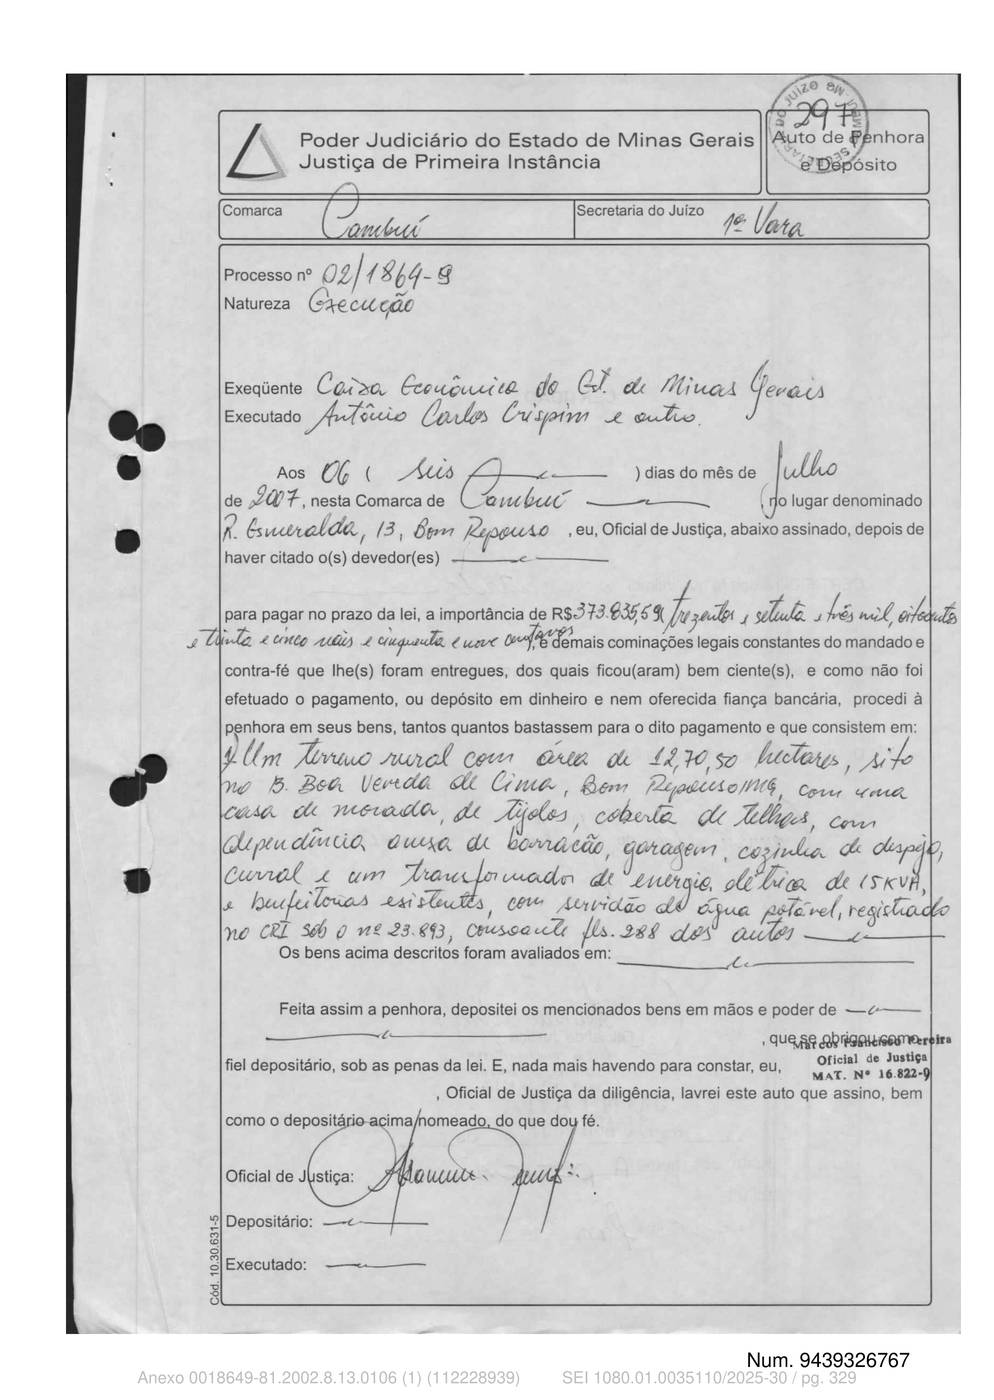 SECRETARIA DO JUÍZO
297
Poder Judiciário do Estado de Minas Gerais
Justiça de Primeira Instância
Auto de Penhora
e Depósito
Comarca Cambuí
Secretaria do Juízo 1ª Vara
Processo nº 02/1864-9
Natureza Execução
Exeqüente Caixa Econômica do Est. de Minas Gerais
Executado Antônio Carlos Crispim e outro.
Aos 06 ( seis ) dias do mês de Julho
de 2007, nesta Comarca de Cambuí (no lugar denominado
R. Esmeralda, 13, Bom Repouso , eu, Oficial de Justiça, abaixo assinado, depois de
haver citado o(s) devedor(es)
para pagar no prazo da lei, a importância de R$373.835,59( trezentos e setenta e três mil, oitocentos
e trinta e cinco reais e cinquenta e nove centavos), e demais cominações legais constantes do mandado e
contra-fé que lhe(s) foram entregues, dos quais ficou(aram) bem ciente(s), e como não foi
efetuado o pagamento, ou depósito em dinheiro e nem oferecida fiança bancária, procedi à
penhora em seus bens, tantos quantos bastassem para o dito pagamento e que consistem em:
1) Um terreno rural com área de 12,70,50 hectares, sito
no B. Boa Vereda de Cima, Bom Repouso/MG, com uma
casa de morada, de tijolos, coberta de telhas, com
dependência anexa de barracão, garagem, cozinha de despejo,
curral e um transformador de energia elétrica de 15KVA,
e benfeitorias existentes, com servidão de água potável, registrado
no CRI sob o nº 23.893, consoante fls. 288 dos autos
Os bens acima descritos foram avaliados em:
Feita assim a penhora, depositei os mencionados bens em mãos e poder de
, que se obrigou como
Marcos Francisco Pereira
fiel depositário, sob as penas da lei. E, nada mais havendo para constar, eu,
Oficial de Justiça
MAT. Nº 16.822-9
, Oficial de Justiça da diligência, lavrei este auto que assino, bem
como o depositário acima nomeado, do que dou fé.
Oficial de Justiça:
Depositário:
Executado:
Cód. 10.30.631-5
Num. 9439326767
Anexo 0018649-81.2002.8.13.0106 (1) (112228939) SEI 1080.01.0035110/2025-30 / pg. 329